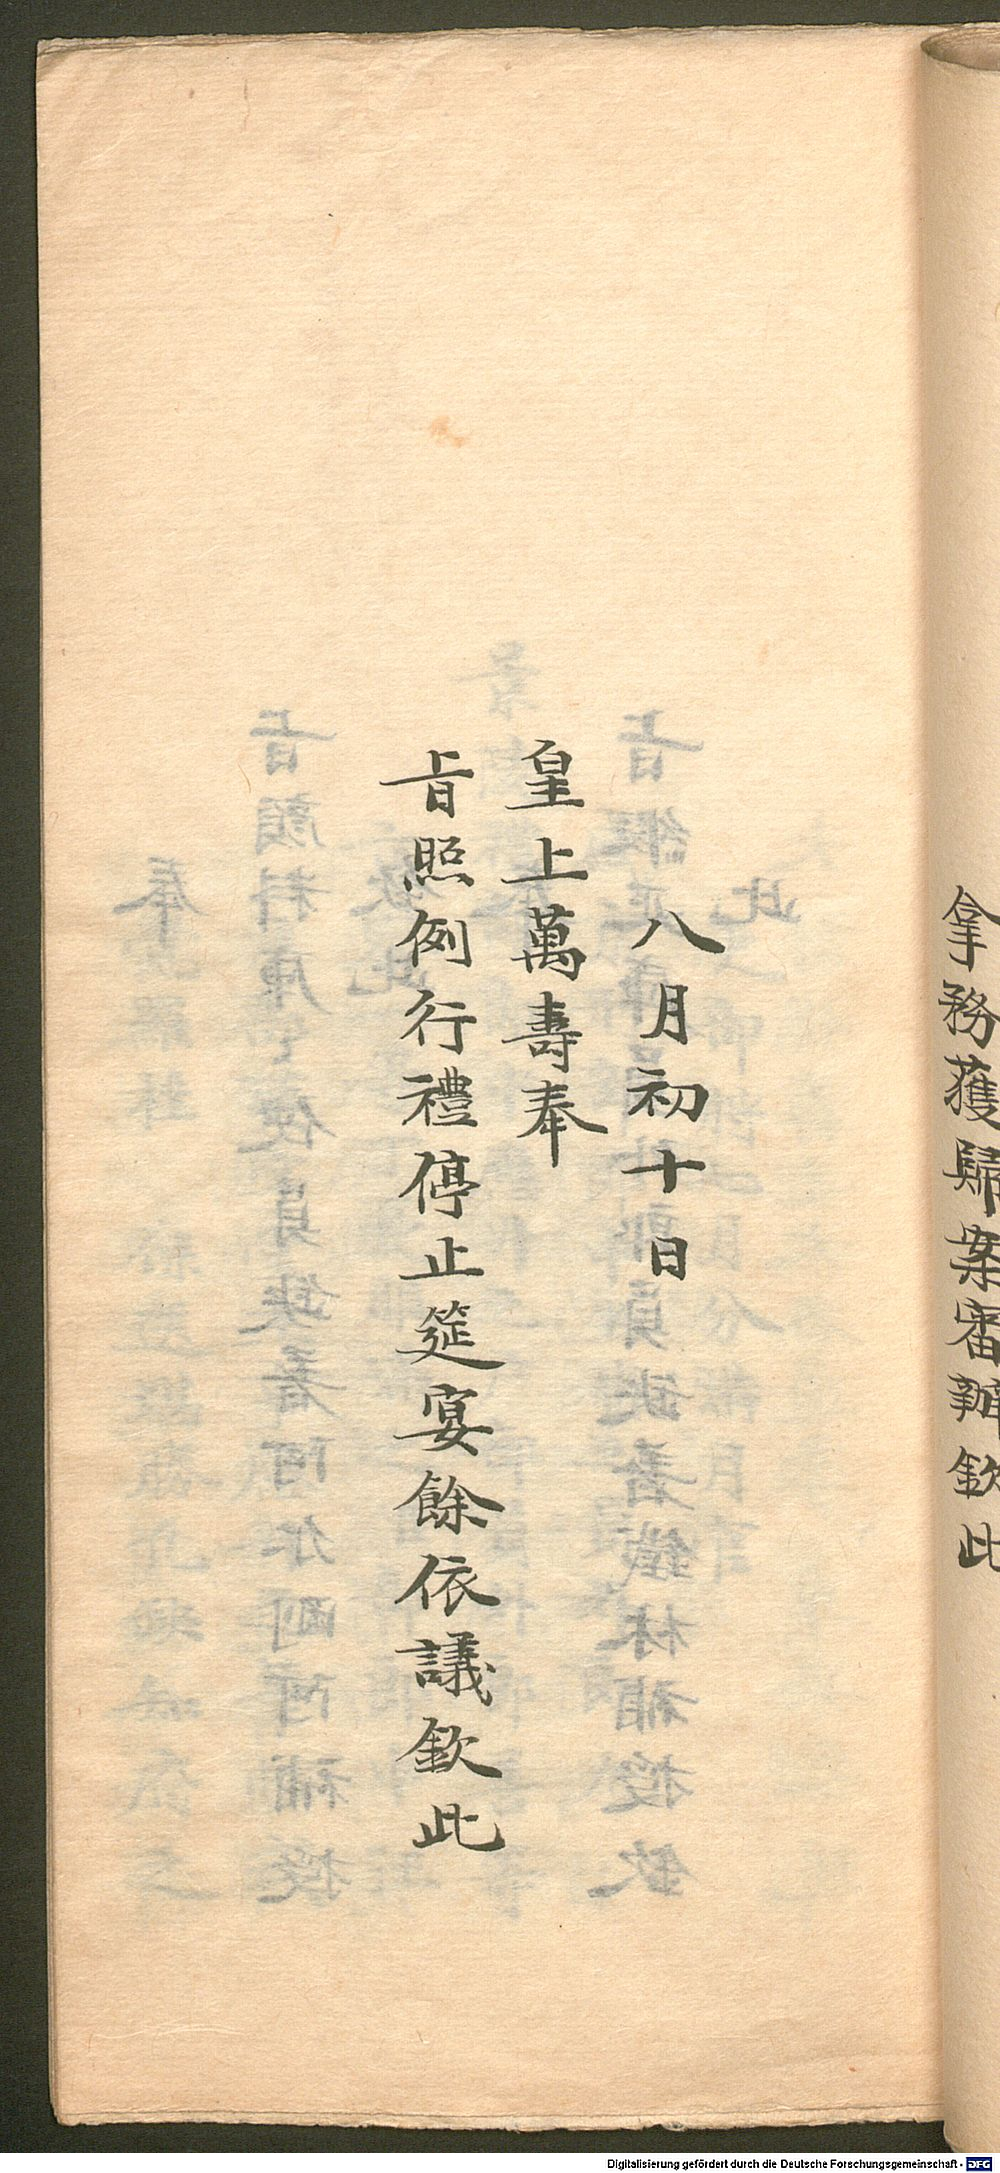 拿務獲歸案審辦欽此
八月初十日
皇上萬壽奉
旨照例行禮停止筵宴餘依議欽此
Digitalisierung gefördert durch die Deutsche Forschungsgemeinschaft - DFG